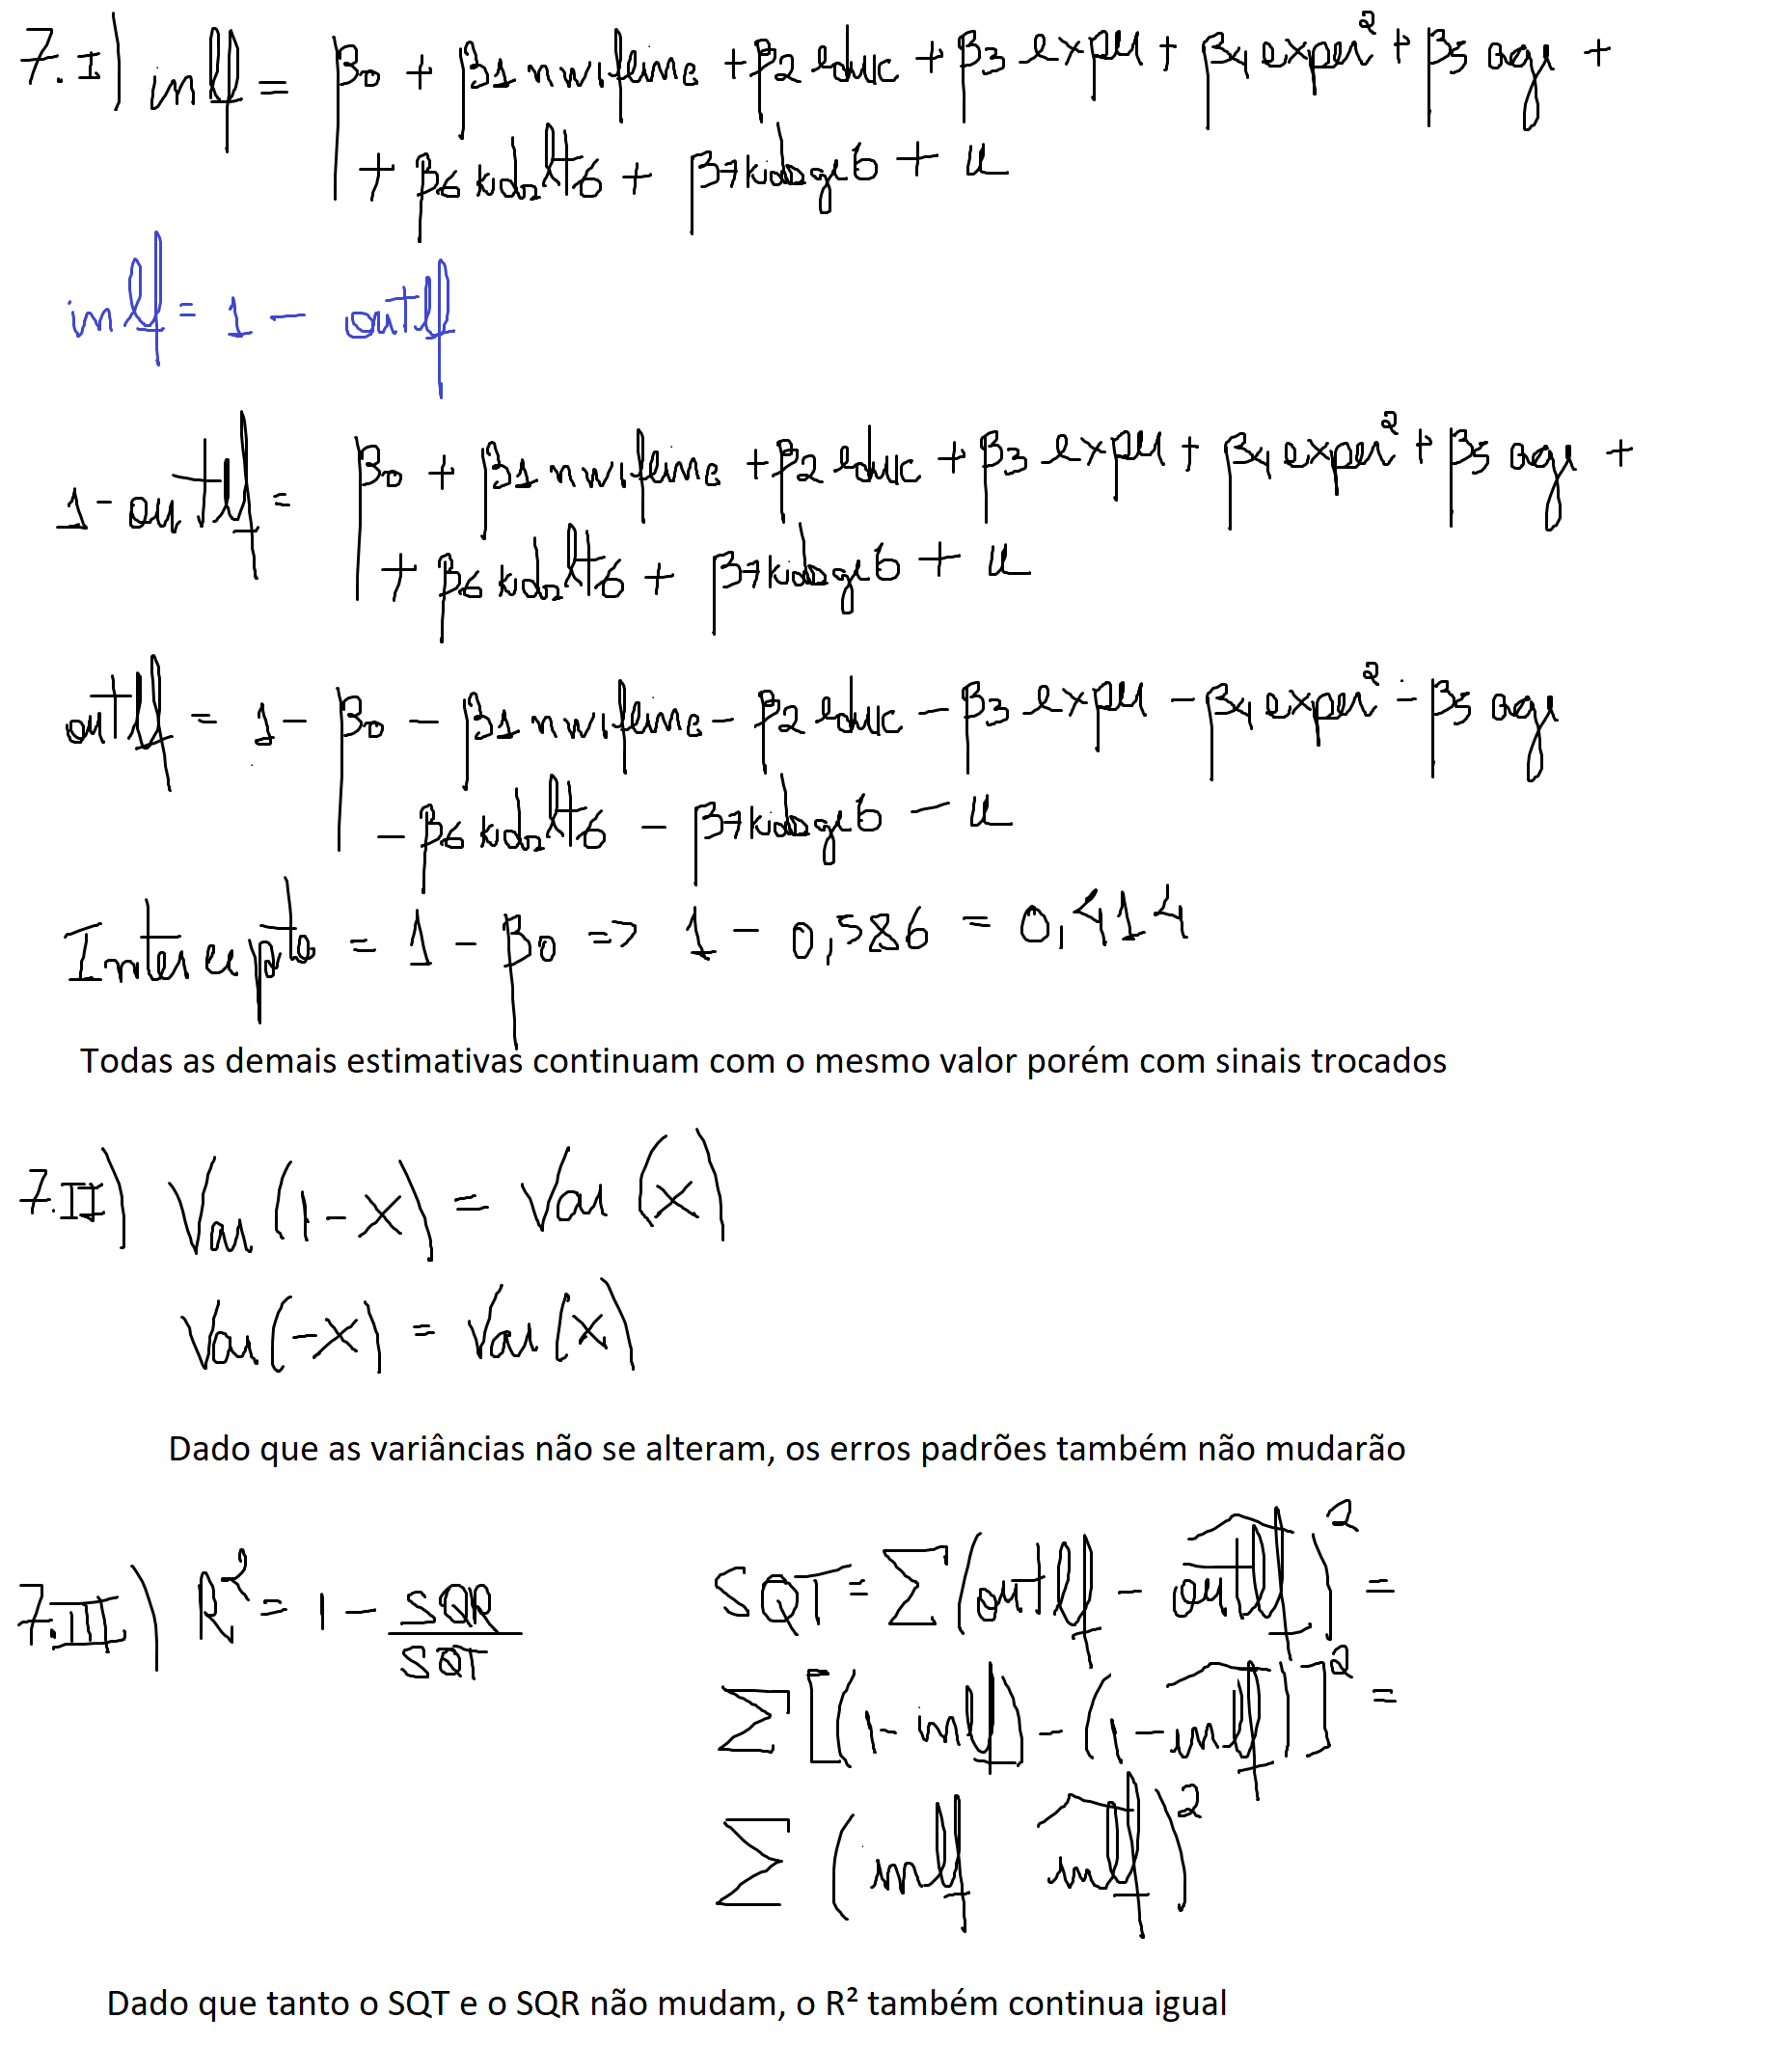 7.I) inlf = β0 + β1 nwifeinc + β2 educ + β3 exper + β4 exper² + β5 age +
+ β6 kidslt6 + β7 kidsge6 + u
inlf = 1 - outlf
1 - outlf = β0 + β1 nwifeinc + β2 educ + β3 exper + β4 exper² + β5 age +
+ β6 kidslt6 + β7 kidsge6 + u
outlf = 1 - β0 - β1 nwifeinc - β2 educ - β3 exper - β4 exper² - β5 age
- β6 kidslt6 - β7 kidsge6 - u
Intercepto = 1 - β0 => 1 - 0,586 = 0,414
Todas as demais estimativas continuam com o mesmo valor porém com sinais trocados
7.II) Var (1-x) = Var (x)
Var(-x) = Var(x)
Dado que as variâncias não se alteram, os erros padrões também não mudarão
7.III) R² = 1 - SQR/SQT
SQT = Σ(outlf - \widehat{outlf})² =
Σ[(1-inlf) - (1-\widehat{inlf})]² =
Σ(inlf \widehat{inlf})²
Dado que tanto o SQT e o SQR não mudam, o R² também continua igual